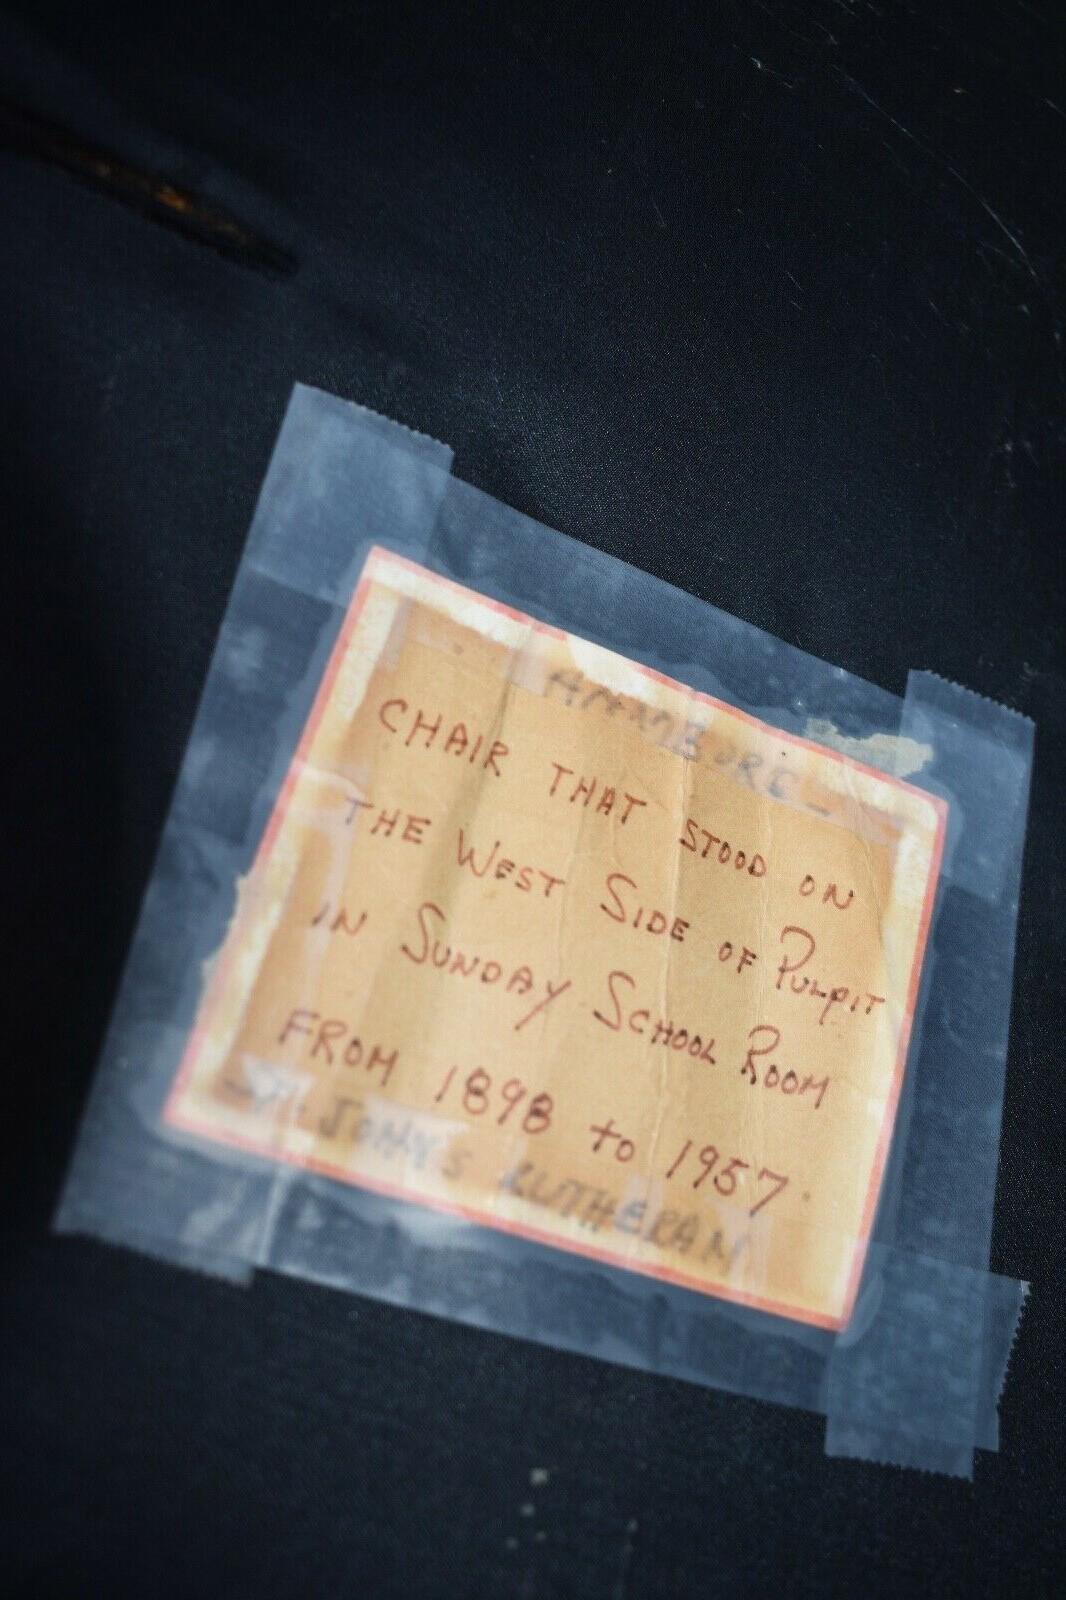 CHAIR THAT STOOD ON
THE WEST SIDE OF PULPIT
IN SUNDAY SCHOOL ROOM
FROM 1898 to 1957.
JOHN'S LUTHERAN